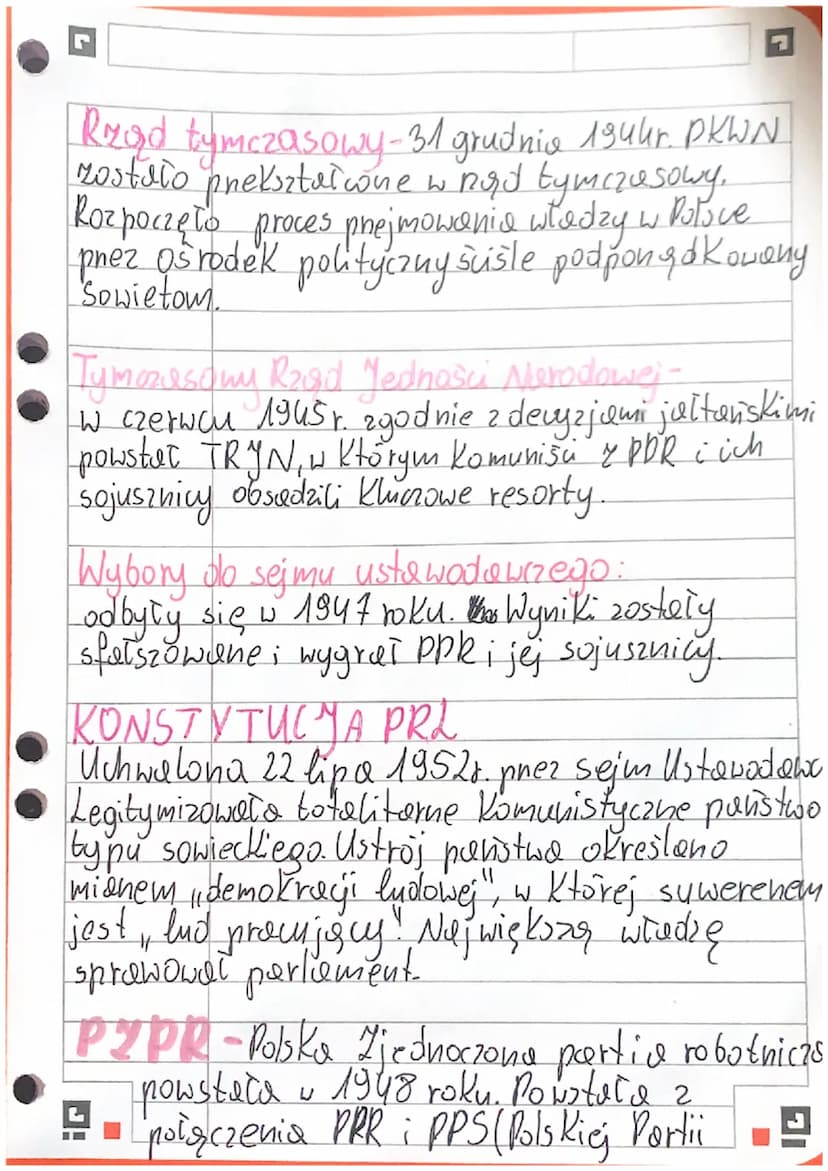 Rząd tymczasowy - 31 grudnia 1944r. PKWN
zostało przekształcone w rząd tymczasowy.
Rozpoczęło proces przejmowania władzy w Polsce
przez ośrodek polityczny ściśle podporządkowany
Sowietom.
Tymczasowy Rząd Jedności Narodowej -
w czerwcu 1945r. zgodnie z decyzjami jałtańskimi
powstał TRJN, w którym komuniści z PPR i ich
sojusznicy obsadzili kluczowe resorty.
Wybory do sejmu ustawodawczego:
odbyły się w 1947 roku. Wyniki zostały
sfałszowane i wygrał PPR i jej sojusznicy.
KONSTYTUCJA PRL
Uchwalona 22 lipa 1952r. przez sejm Ustawodawc
Legitymizowała totalitarne komunistyczne państwo
typu sowieckiego. Ustrój państwa określano
mianem „demokracji ludowej", w której suwerenem
jest „lud pracujący". Największą władzę
sprawował parlament.
PZPR - Polska Zjednoczona partia robotnicza
powstała w 1948 roku. Powstała z
połączenia PPR i PPS (Polskiej Partii